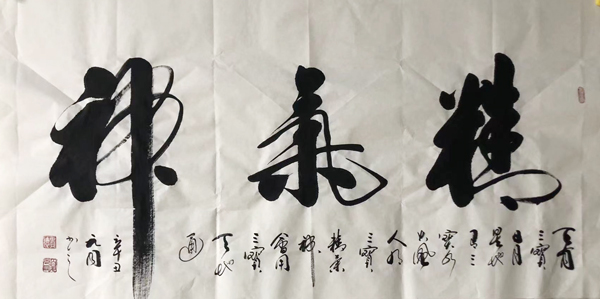 精氣神
天有
三寶
日月
星地
有三
寶水
火風
人有
三寶
精氣
神
會用
三寶
天地
通
辛丑
书之